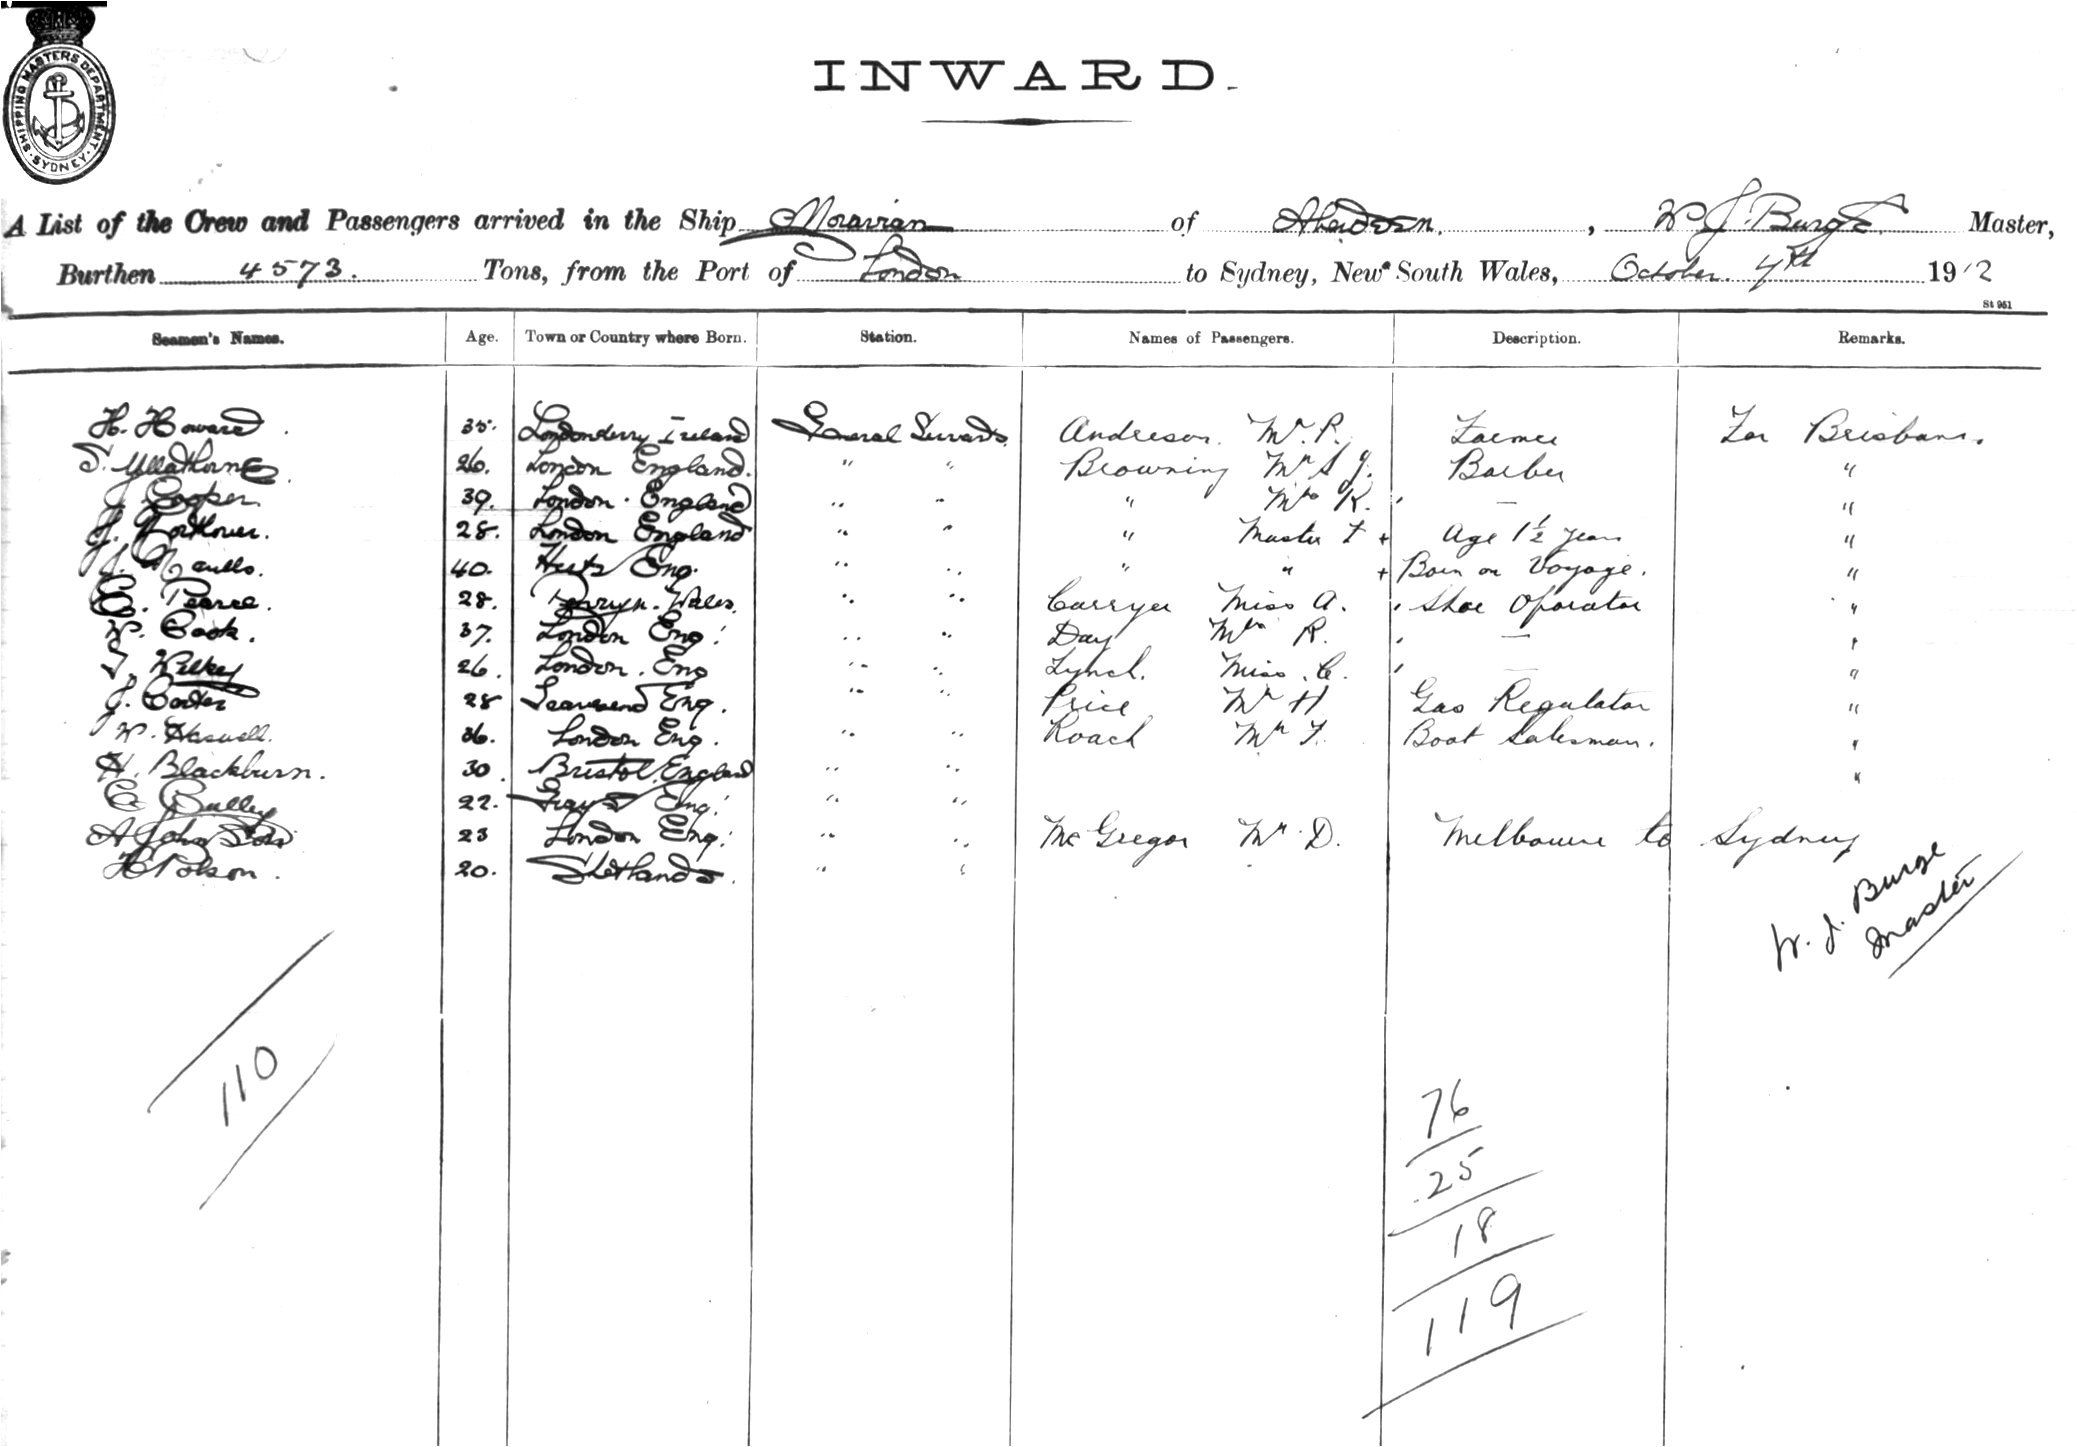 SHIPPING MASTERS DEPARTMENT
SYDNEY
INWARD.
A List of the Crew and Passengers arrived in the Ship Moravian of Aberdeen, W J. Burge Master,
Burthen 4573. Tons, from the Port of London to Sydney, New South Wales, October 7th 1912
St 951
Seamen's Names. Age. Town or Country where Born. Station. Names of Passengers. Description. Remarks.
H. Howard. 35. Londonderry Ireland General Servants Anderson. Mr. P. Farmer For Brisbane.
S. Yllathorne 26. London England. " " Browning Mr S J. Barber "
J. Cooper. 39. London. England " " " Mrs K. — "
J. Northover. 28. London England " " " Master F + Age 1½ years "
40. Herts Eng. " " " " + Born on Voyage. "
E. Pearce. 28. Wales. " " Carryer Miss A. Shoe Operator "
W. Cook. 37. London Eng. " " Day Mrs R. — "
T. Wilkey 26. London. Eng " " Lynch. Miss. C. — "
J. Carter 28 Gravesend Eng. " " Price Mr H Gas Regulator "
W. Haswell. 36. London Eng. " " Roach Mr F. Boot Salesman. "
H. Blackburn. 30. Bristol England " " "
C. Bulley 22. Grays Eng. " "
A Johnston 23 London Eng. " " McGregor Mr. D. Melbourne to Sydney
H Polson. 20. Shetlands. " "
W. J. Burge
Master
110
76
25
18
119